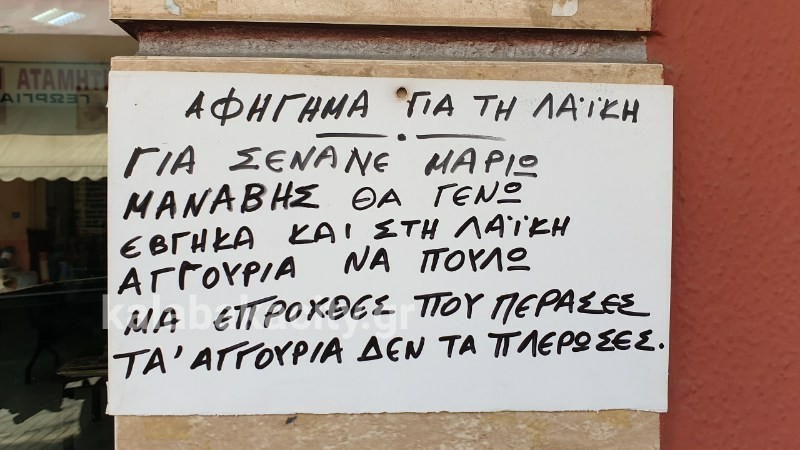 ΑΦΗΓΗΜΑ ΓΙΑ ΤΗ ΛΑΪΚΗ
ΓΙΑ ΣΕΝΑΝΕ ΜΑΡΙΩ
ΜΑΝΑΒΗΣ ΘΑ ΓΕΝΩ
ΕΒΓΗΚΑ ΚΑΙ ΣΤΗ ΛΑΪΚΗ
ΑΓΓΟΥΡΙΑ ΝΑ ΠΟΥΛΩ
ΜΑ ΕΠΡΟΧΘΕΣ ΠΟΥ ΠΕΡΑΣΕΣ
ΤΑ' ΑΓΓΟΥΡΙΑ ΔΕΝ ΤΑ ΠΛΕΡΩΣΕΣ.
kalabakacity.gr